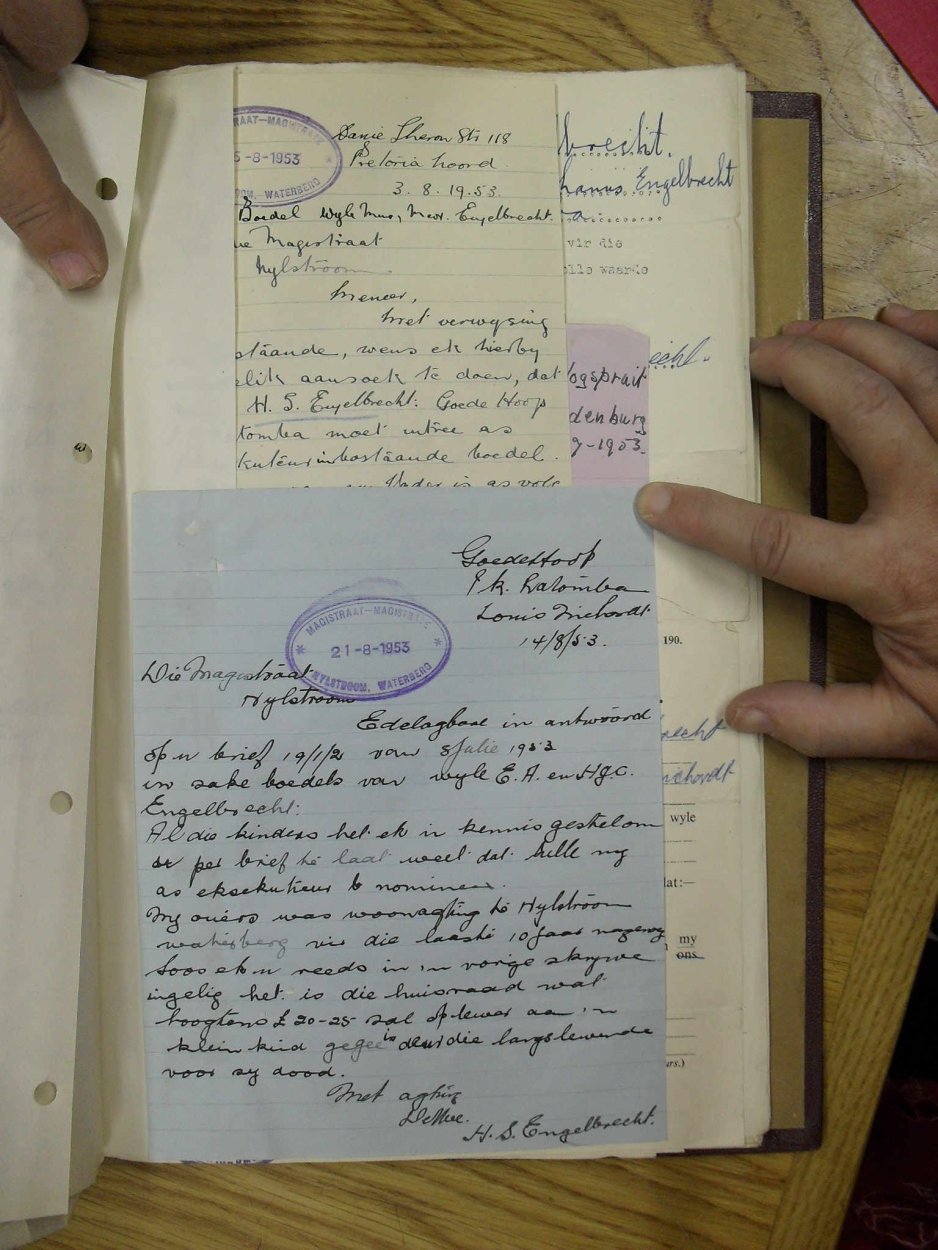 RAAT-MAGI
5-8-1953
OM, WATERBERG
Danie Theron Str 118
Pretoria Noord
3.8.1953.
Boedel wyle Mnr, Mev. Engelbrecht.
ie Magistraat
Nylstroom
Meneer,
Met verwysing
staande, wens ek hierby
elik aansoek te doen, dat
H. S. Engelbrecht: Goede Hoop
tomba moet intree as
kuteur in bostaande boedel.
Vader is as volg
brecht.
hanus Engelbrecht
a.
vir die
olle waarde
echt.
ogspruit
denburg
9-1953.
GoedeHoop
P/k. Ratomba
Louis Trichardt
14/8/53.
MAGISTRAAT-MAGISTRATE
21-8-1953
NYLSTROOM, WATERBERG
Die Magistraat
Nylstroom
Edelagbare in antwoord
op u brief 19/1/2 van 8 Julie 1953
in sake boedels van wyle E. A. en H.J.C.
Engelbrecht:
Al die kinders het ek in kennis gestel om
u per brief te laat weet dat hulle my
as eksekuteur te nomineer.
My ouers was woonagtig te Nylstroom
waterberg vir die laaste 10 jaar
Soos ek u reeds in 'n vorige skrywe
ingelig het. is die huisraad wat
hoogtens £20-25 sal oplewer aan 'n
klein kind gegee is deur die langslewende
voor sy dood.
Met agting
Dienswe.
H. S. Engelbrecht.
190.
recht
ichardt
wyle
lat:—
my
ons
rs.)